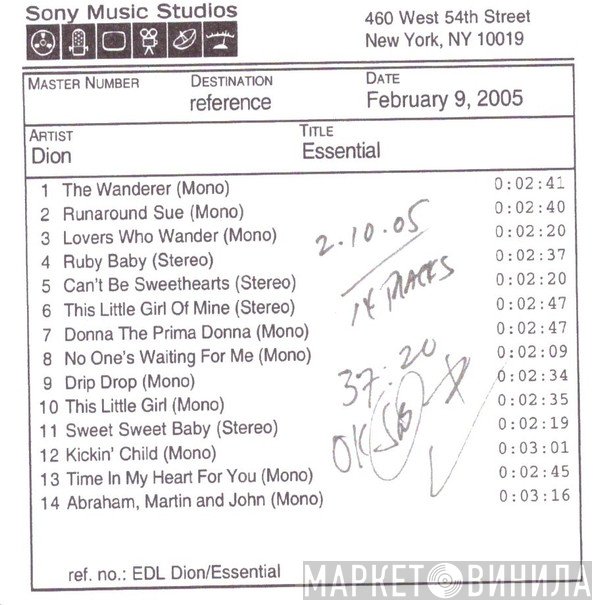 Sony Music Studios
460 West 54th Street
New York, NY 10019
MASTER NUMBER
DESTINATION
reference
DATE
February 9, 2005
ARTIST
Dion
TITLE
Essential
1 The Wanderer (Mono) 0:02:41
2 Runaround Sue (Mono) 0:02:40
3 Lovers Who Wander (Mono) 0:02:20
4 Ruby Baby (Stereo) 0:02:37
5 Can't Be Sweethearts (Stereo) 0:02:20
6 This Little Girl Of Mine (Stereo) 0:02:47
7 Donna The Prima Donna (Mono) 0:02:47
8 No One's Waiting For Me (Mono) 0:02:09
9 Drip Drop (Mono) 0:02:34
10 This Little Girl (Mono) 0:02:35
11 Sweet Sweet Baby (Stereo) 0:02:19
12 Kickin' Child (Mono) 0:03:01
13 Time In My Heart For You (Mono) 0:02:45
14 Abraham, Martin and John (Mono) 0:03:16
2.10.05
14 TRACKS
37:20
OK SB
ref. no.: EDL Dion/Essential
МАРКЕТ ВИНИЛА